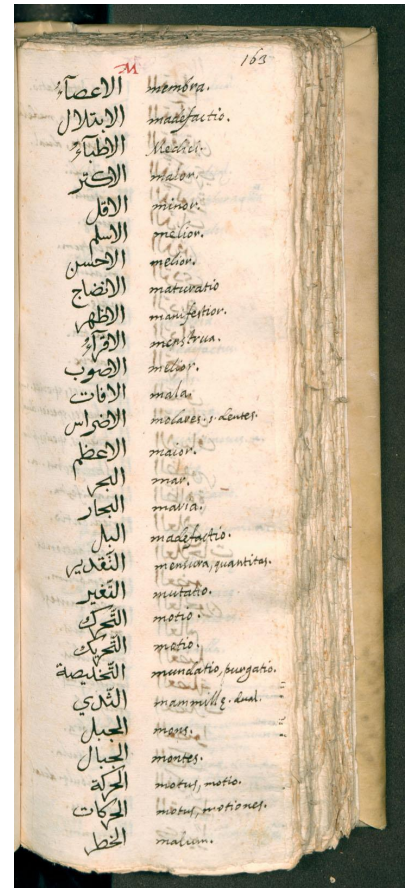 M 163
الاعصآء membra.
الابتلال madefactio.
الاطبآء Medici.
الاكتر maior.
الاقل minor.
الاسلم melior.
الاحسن melior.
الانضاج maturatio
الاظهر manifestior.
الاقرآء menstrua.
الاصوب melior.
الافات mala.
الاضراس molares .s. dentes.
الاعظم maior.
البحر mar.
البحار maria.
البل madefactio.
التّقدير mensura, quantitas.
التّغير mutatio.
التّحرك motio.
التّحريك motio.
التّخليصة mundatio, purgatio.
الثّدي mammillę. dual.
الجبل mons.
الجبال montes.
الحركة motus, motio.
الحركات motus, motiones.
الخطر malum.